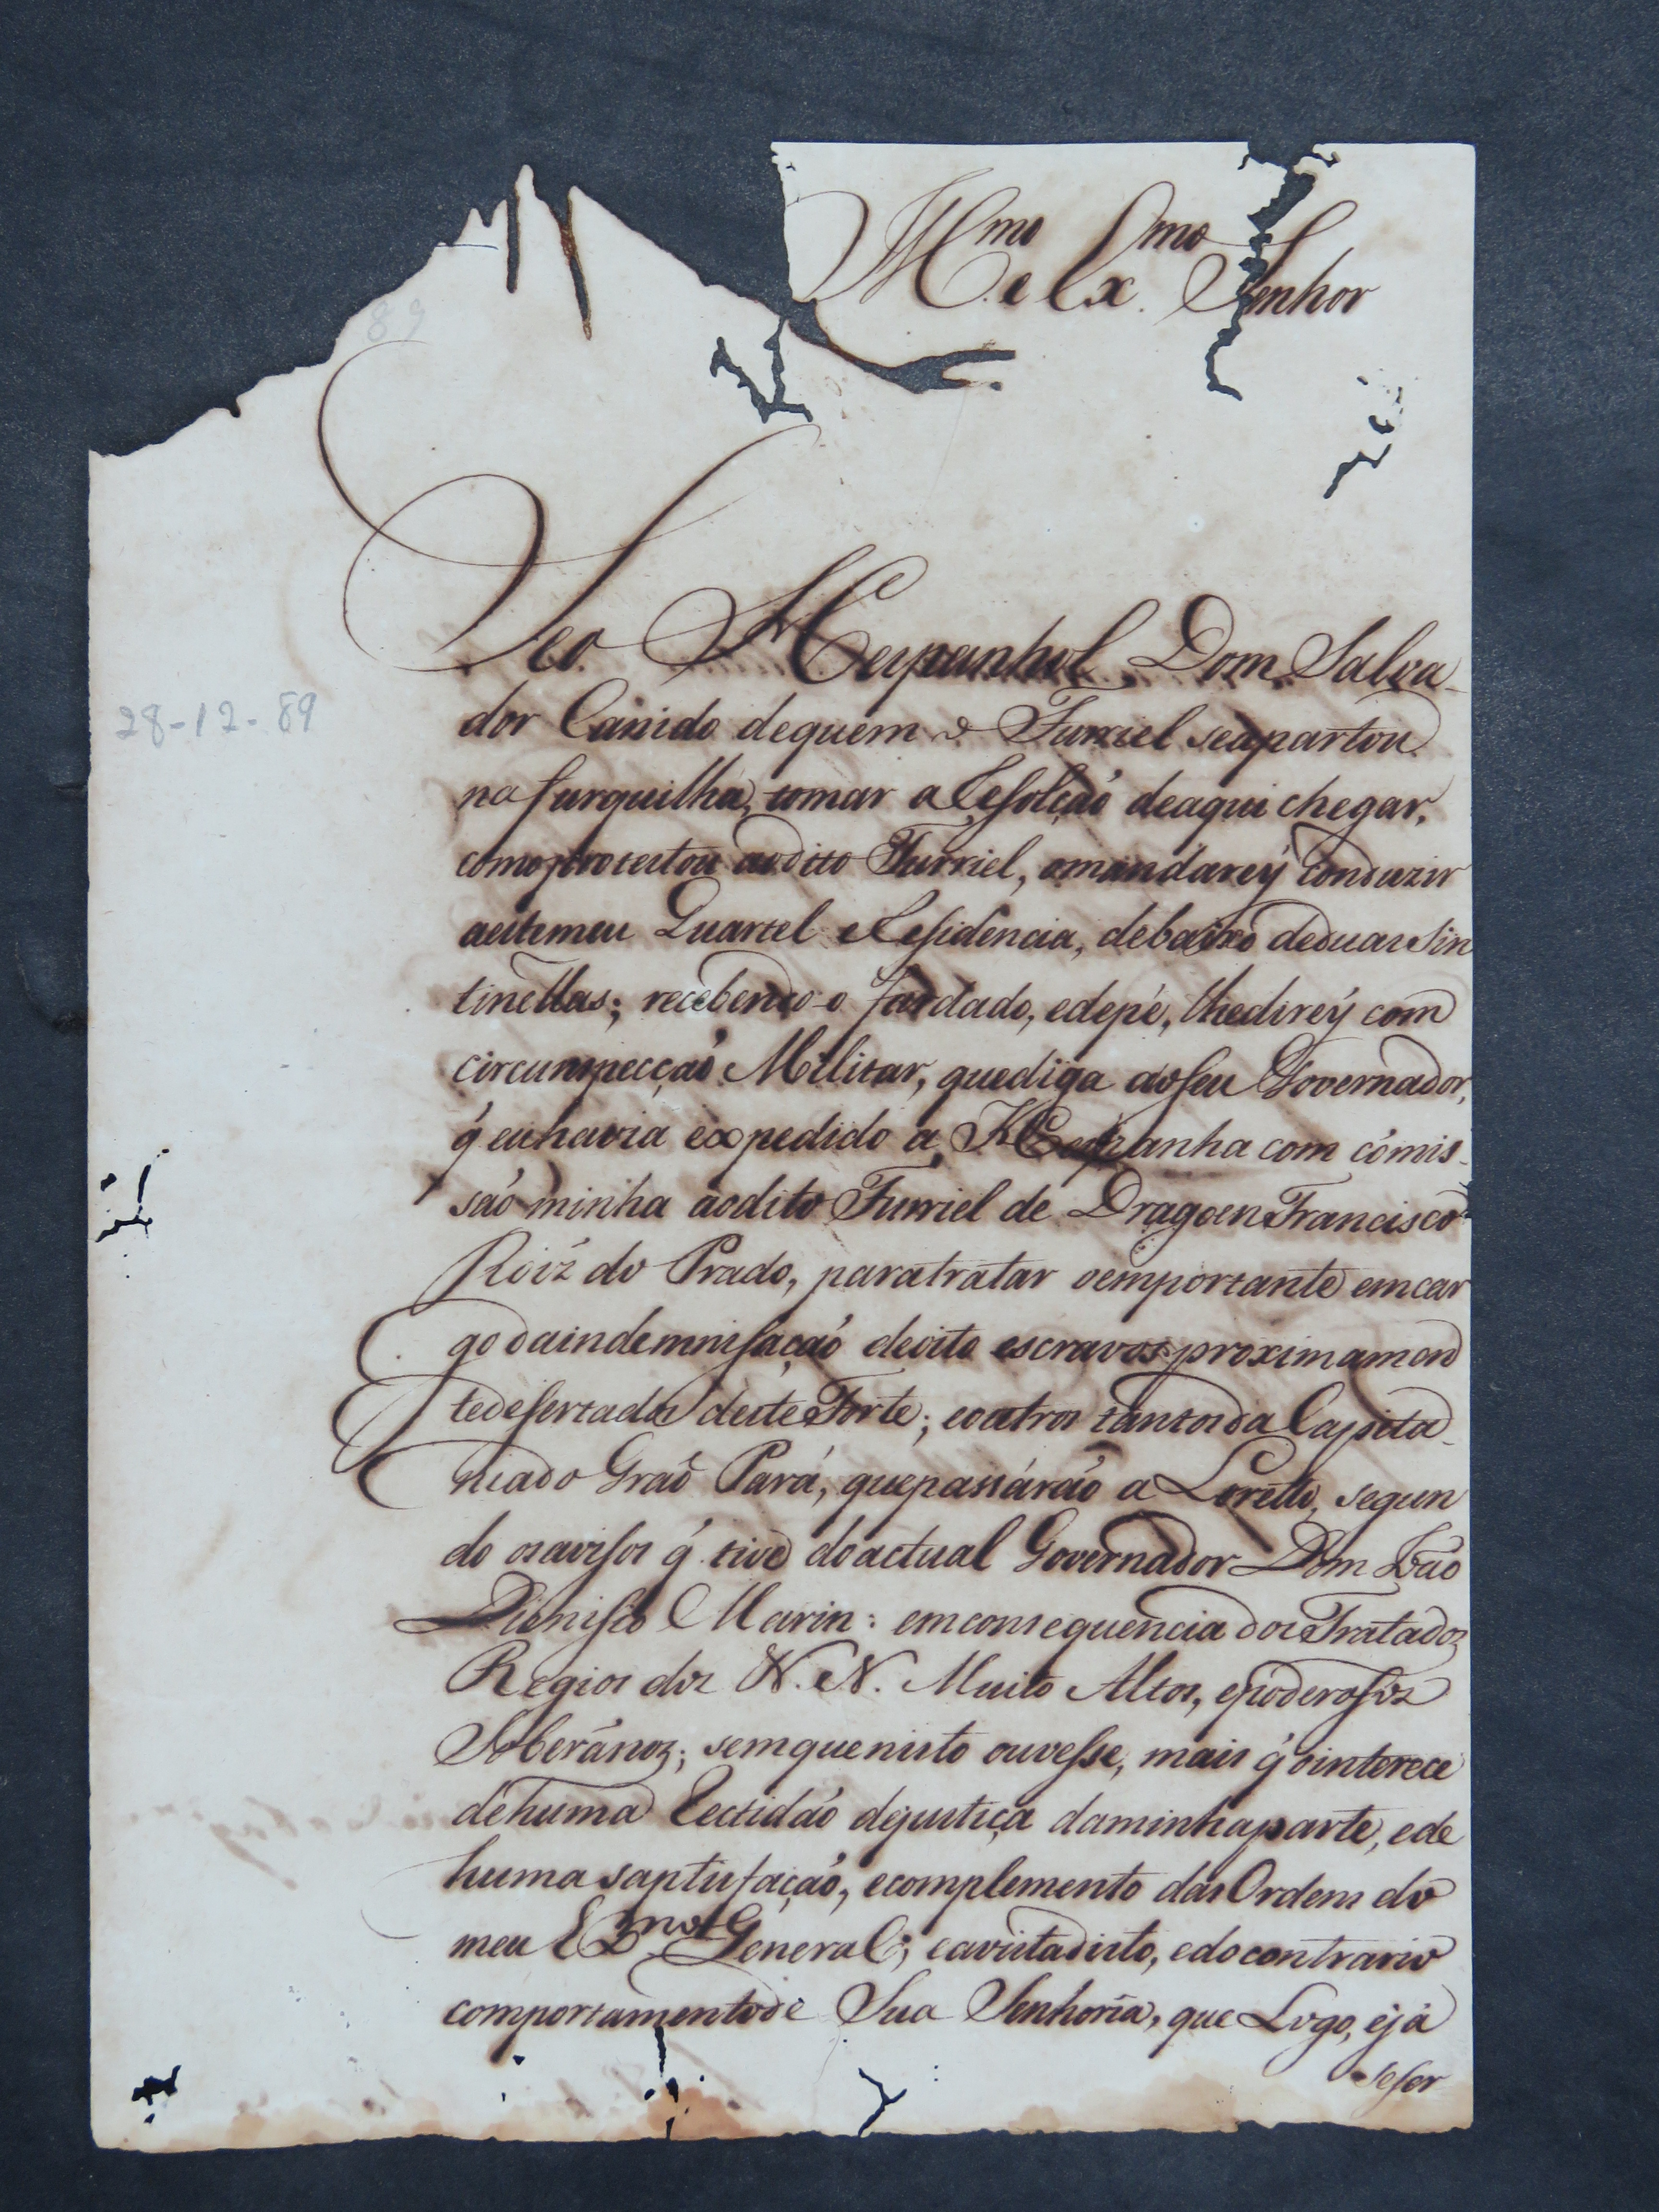 89
Ill.mo e Ex.mo Senhor
Seo Hespanhol Dom Salva-
dor Canido dequem o Furriel seapartou
na furquilha, tomar a Resolção deaqui chegar,
como protestou aodito Furriel, omandarey conduzir
aestemeu Quartel eResidencia, debaixo deduas Sin
tinellas; recebendo-o fardado, edepé, lhedirey com
circunspecçaõ Militar, quediga aoseu Governador,
q̃ euhavia expedido a Hespanha com cómis-
saõ minha aodito Furriel de Dragoens Francisco
Roiz do Prado, paratratar oemportante emcar
go daindemnisaçaõ deoito escravos proximamen
tedesertados desteForte; eoutros tantosda Capita-
niado Graõ Pará, quepassáraõ a Loreto, segun
do osavisos q̃ tive doactual Governador Dom Joaõ
Dionisio Marin: emconsequencia dos Tratados
Regios dos N. N. Muito Altos, epoderosos
Soberános; semquenisto ouvesse, mais q̃ ointerece
dehuma Rectidaõ dejustiça daminhaparte, ede
huma saptisfaçaõ, ecomplemento das Ordens do
meu Ex.mo General; eavistadisto, edocontrario
comportamentode Sua Senhoria, que Logo, ejá
seser
28-12-89